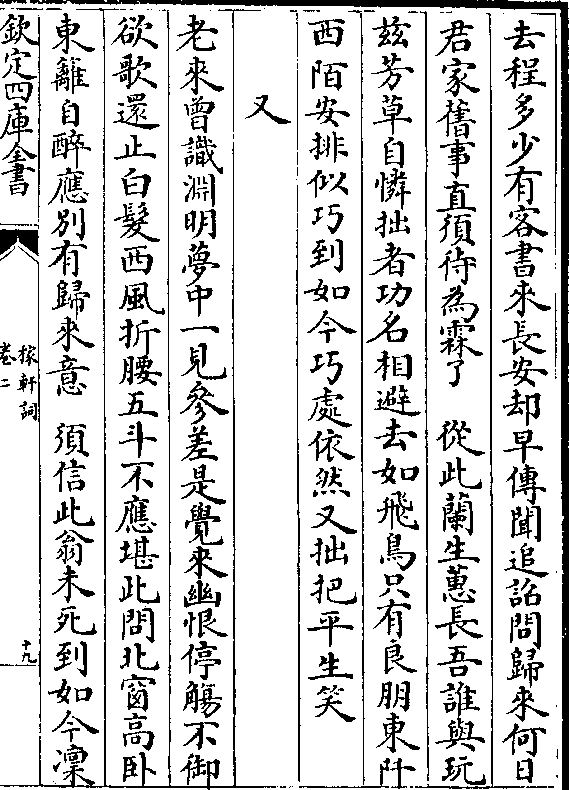 去程多少有客書來長安却早傳聞追詔問歸來何日
君家舊事直須待為霖了　從此蘭生蕙長吾誰與玩
兹芳草自憐拙者功名相避去如飛鳥只有良朋東阡
西陌安排似巧到如今巧處依然又拙把平生笑
又
老來曾識淵明夢中一見參差是覺來幽恨停觴不御
欲歌還止白髮西風折腰五斗不應堪此問北窗高卧
東籬自醉應別有歸來意　須信此翁未死到如今凜
欽定四庫全書
稼軒詞
卷二
十九